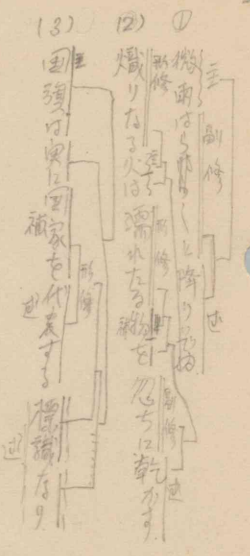 ①
主 副修 述
微雨はらはらと降り
(2) 形修 主 形修 補 副修 述
熾りなる火は濡れたる物を忽ちに乾かす
(3) 主 補 述 形修 述
国旗は実に国家を代表する標識なり